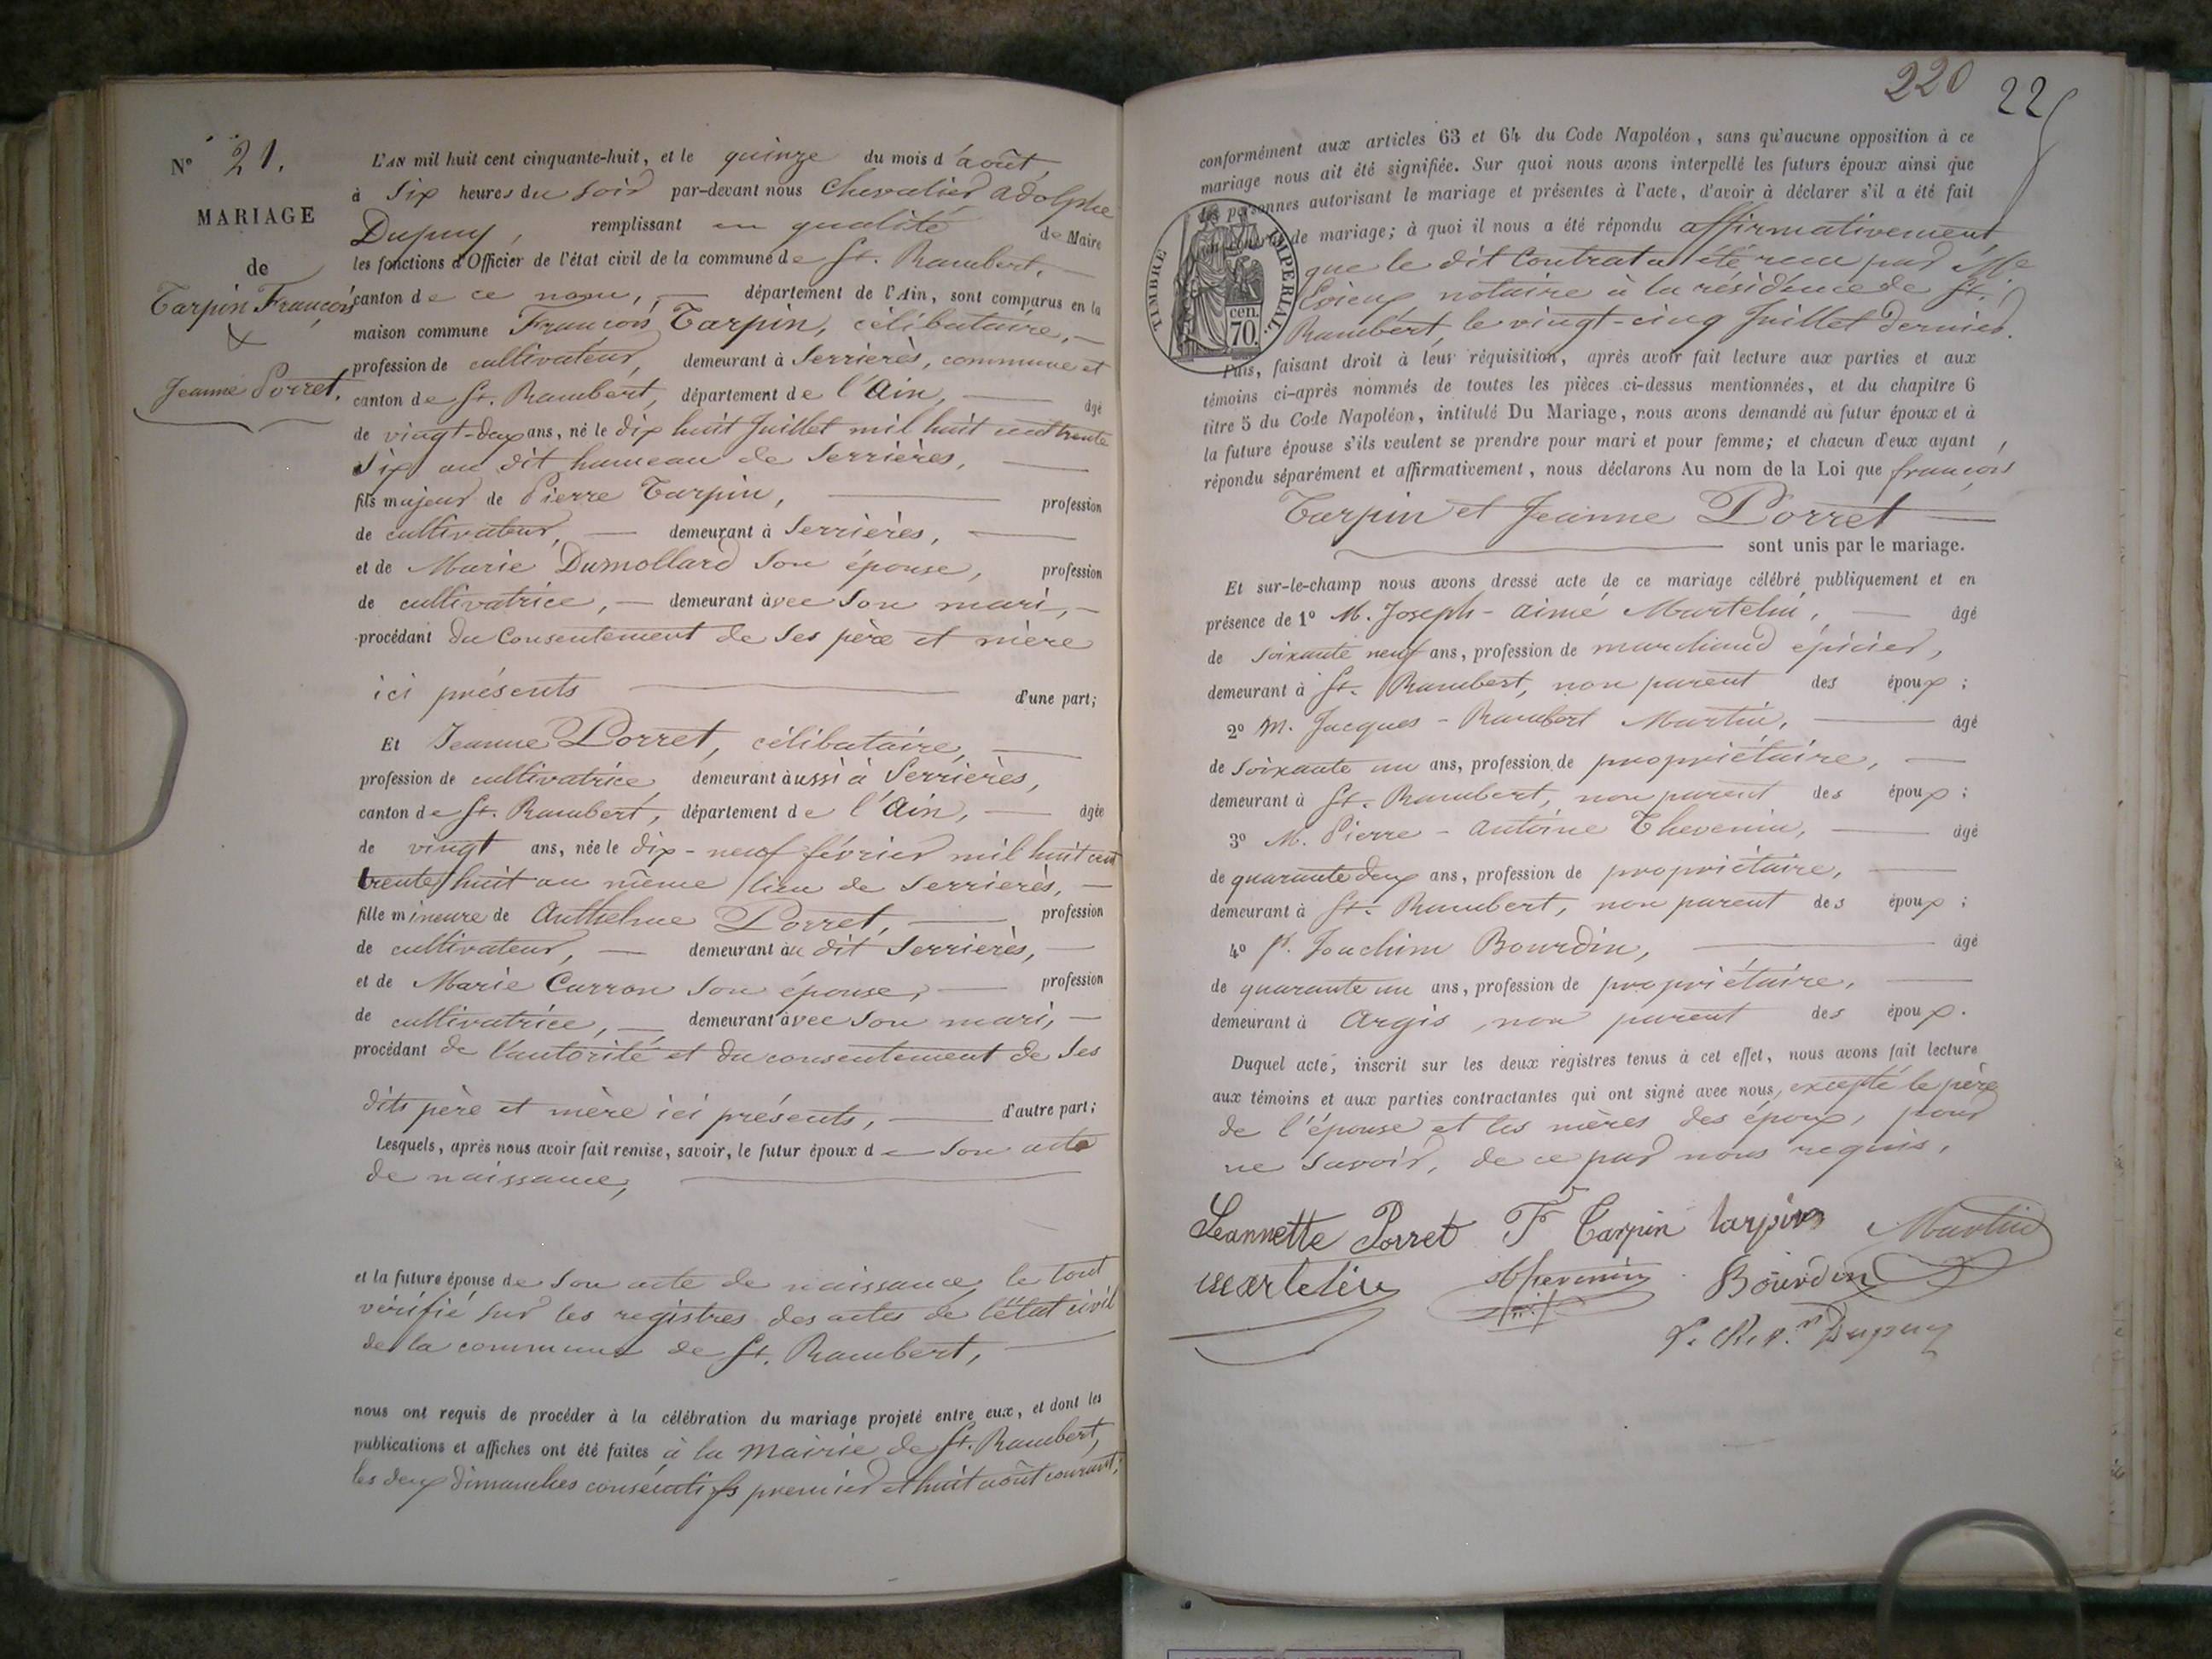 N° 21.
MARIAGE
de
Tarpin François
&
Jeanne Porret.
L'AN mil huit cent cinquante-huit, et le quinze du mois d'août,
à Six heures du Soir par-devant nous Chevalier Adolphe
Dupuy, remplissant en qualité de Maire
les fonctions d'Officier de l'état civil de la commune de St. Rambert,
canton de ce nom, département de l'Ain, sont comparus en la
maison commune François Tarpin, célibataire,
profession de cultivateur, demeurant à Serrières, commune et
canton de St. Rambert, département de l'Ain, âgé
de vingt-deux ans, né le dix huit Juillet mil huit cent trente
Six au dit hameau de Serrières,
fils majeur de Pierre Tarpin, profession
de cultivateur, demeurant à Serrières,
et de Marie Dumollard Son épouse, profession
de cultivatrice, demeurant avec Son mari,
procédant du Consentement de Ses père et mère
ici présents d'une part;
Et Jeanne Porret, célibataire,
profession de cultivatrice, demeurant aussi à Serrières,
canton de St. Rambert, département de l'Ain, âgée
de vingt ans, née le dix-neuf février mil huit cent
trente huit au même lieu de Serrières,
fille mineure de Anthelme Porret, profession
de cultivateur, demeurant au dit Serrières,
et de Marie Carron Son épouse, profession
de cultivatrice, demeurant avec Son mari,
procédant de l'autorité et du consentement de Ses
dits père et mère ici présents, d'autre part;
Lesquels, après nous avoir fait remise, savoir, le futur époux de Son acte
de naissance,
et la future épouse de Son acte de naissance, le tout
vérifié Sur les registres des actes de l'état civil
de la commune de St. Rambert,
nous ont requis de procéder à la célébration du mariage projeté entre eux, et dont les
publications et affiches ont été faites à la Mairie de St. Rambert,
les deux dimanches consécutifs premier et huit août courant,
220
conformément aux articles 63 et 64 du Code Napoléon, sans qu'aucune opposition à ce
mariage nous ait été signifiée. Sur quoi nous avons interpellé les futurs époux ainsi que
les personnes autorisant le mariage et présentes à l'acte, d'avoir à déclarer s'il a été fait
de mariage; à quoi il nous a été répondu affirmativement
que le dit Contrat a été recu par Me
notaire à la résidence de St.
Rambert, le vingt-cinq Juillet dernier.
TIMBRE IMPERIAL.
cen.
70.
Puis, faisant droit à leur réquisition, après avoir fait lecture aux parties et aux
témoins ci-après nommés de toutes les pièces ci-dessus mentionnées, et du chapitre 6
titre 5 du Code Napoléon, intitulé Du Mariage, nous avons demandé au futur époux et à
la future épouse s'ils veulent se prendre pour mari et pour femme; et chacun d'eux ayant
répondu séparément et affirmativement, nous déclarons Au nom de la Loi que françois
Tarpin et Jeanne Porret
sont unis par le mariage.
Et sur-le-champ nous avons dressé acte de ce mariage célébré publiquement et en
présence de 1° M. Joseph-Aimé Martelin, âgé
de Soixante neuf ans, profession de marchand épicier,
demeurant à St. Rambert, non parent des époux;
2° M. Jacques-Rambert Martin, âgé
de Soixante un ans, profession de propriétaire,
demeurant à St. Rambert, non parent des époux;
3° M. Pierre-Antoine Thevenin, âgé
de quarante deux ans, profession de propriétaire,
demeurant à St. Rambert, non parent des époux;
4° Joachim Bourdin, âgé
de quarante un ans, profession de propriétaire,
demeurant à Argis, non parent des époux.
Duquel acte, inscrit sur les deux registres tenus à cet effet, nous avons fait lecture
aux témoins et aux parties contractantes qui ont signé avec nous, excepté le père
de l'épouse et les mères des époux, pour
ne Savoir, de ce par nous requis,
Jeannette Porret F Tarpin tarpin Martin
martelin Thevenin Bourdin
Dupuy